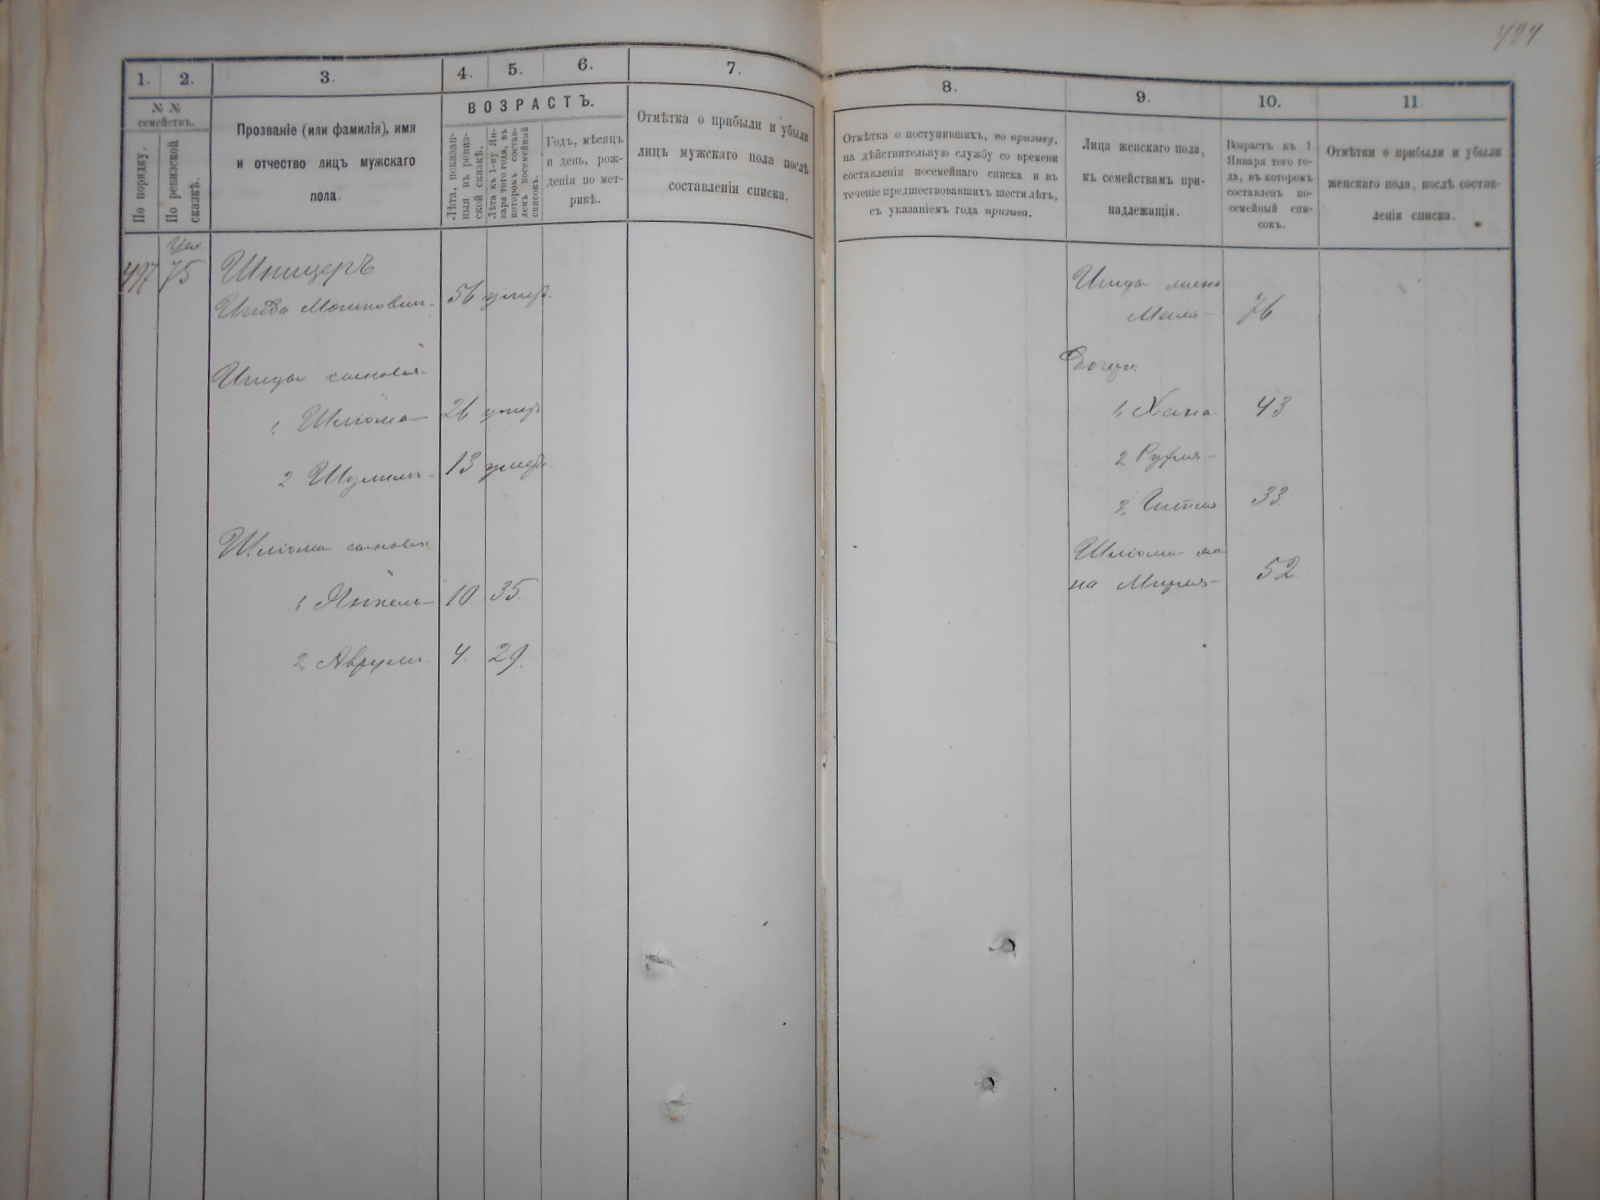 1.
2.
3.
4.
5.
6.
7.
№ №
семействъ.
По порядку.
По ревизской сказкѣ.
Прозваніе (или фамилія), имя
и отчество лицъ мужскаго
пола.
ВОЗРАСТЪ.
Лѣта, показан-
ныя въ ревиз-
ской сказкѣ.
Лѣта къ 1-му Ян-
варя того года, въ
которомъ состав-
ленъ посемейный
списокъ.
Годъ, мѣсяцъ
и день, рож-
денія по мет-
рикѣ.
Отмѣтка о прибыли и убыли
лицъ мужскаго пола послѣ
составленія списка.
497
75
Шпицеръ
56 умеръ.
сыновья
1 Шліома 26 умеръ
2 13 умеръ.
Шліома сыновья
1 Янкель 10 35.
2 4. 29.
8.
9.
10.
11
Отмѣтка о поступившихъ, по призыву,
на дѣйствительную службу со времени
составленія посемейнаго списка и въ
теченіе предшествовавшихъ шести лѣтъ,
съ указаніемъ года призыва.
Лица женскаго пола,
къ семействамъ при-
надлежащія.
Возрастъ къ 1
Января того го-
да, въ которомъ
составленъ по-
семейный спи-
сокъ.
Отмѣтки о прибыли и убыли
женскаго пола, послѣ состав-
ленія списка.
жена
76
Дочери:
1, Хана 43
2
3, 33
Шліома же
на 52